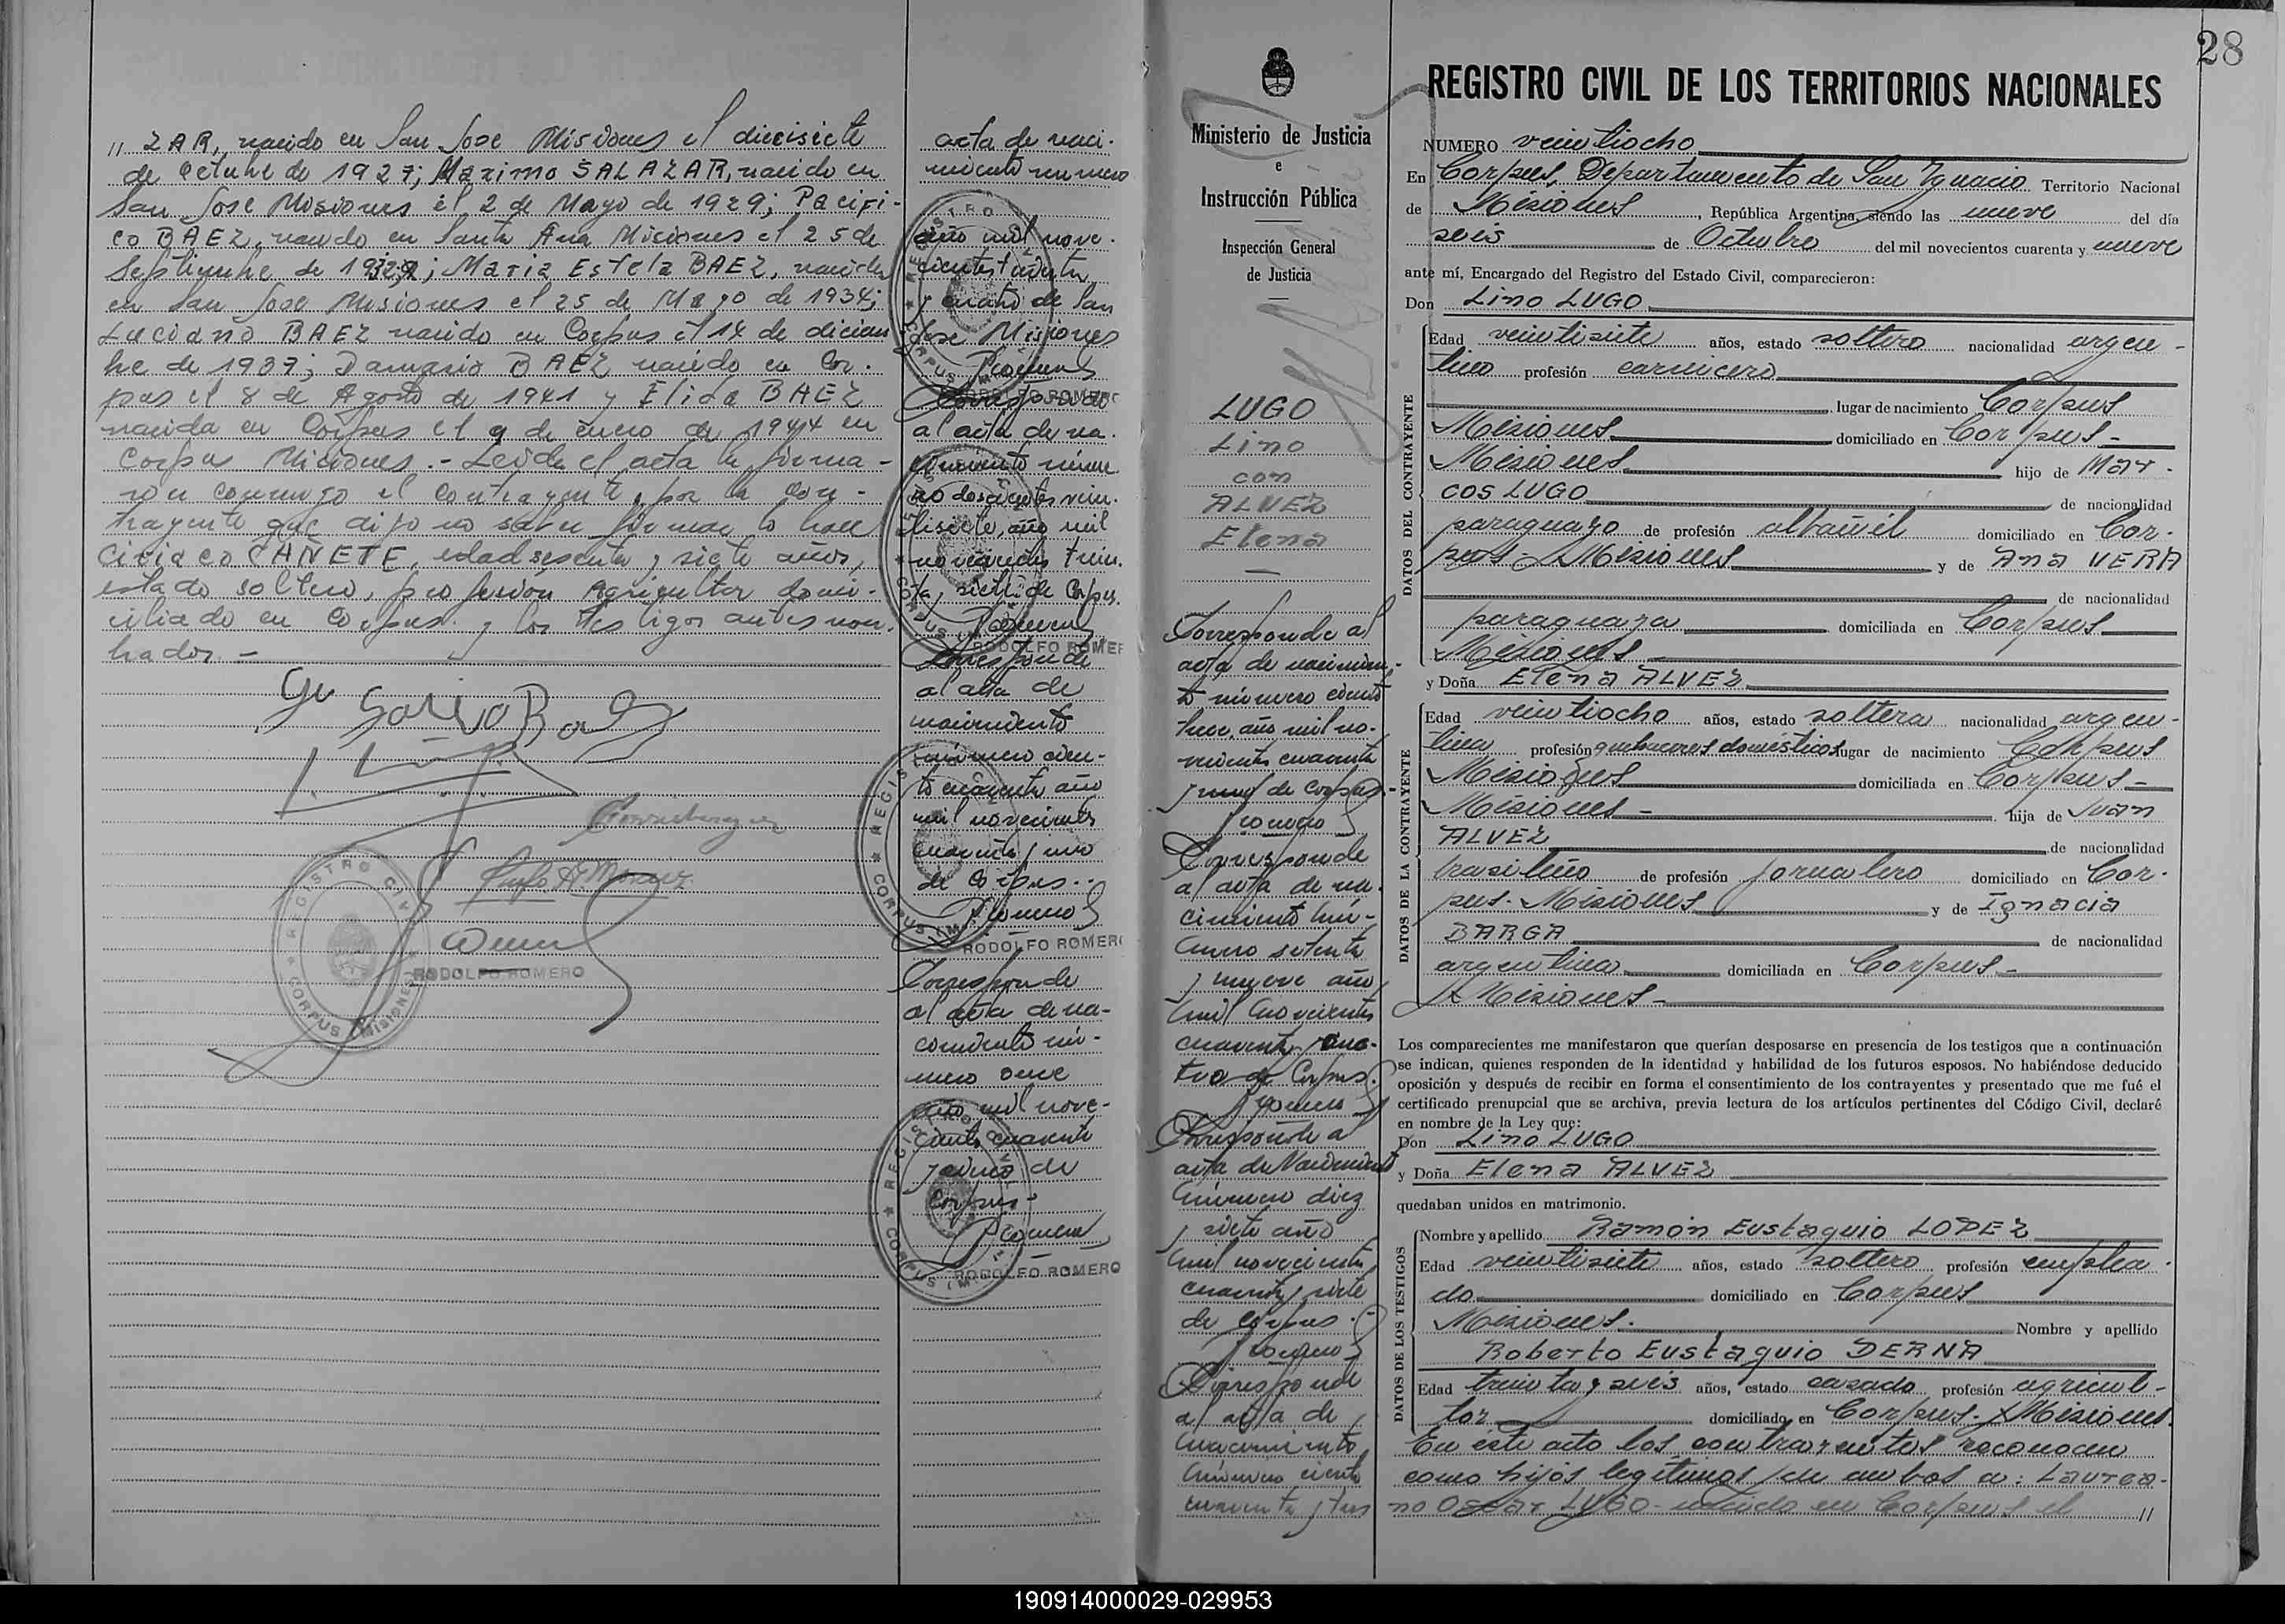 28
// ZAR, nacido en San Jose Misiones el diecisiete
de Octubre de 1927; Maximo SALAZAR, nacido en
San Jose Misiones el 2 de Mayo de 1929; Pacifi-
co BAEZ, nacido en Santa Ana Misiones el 25 de
Septiembre de 1932; Maria Estela BAEZ, nacida
en San Jose Misiones el 25 de Mayo de 1934;
Luciano BAEZ nacido en Corpus el 14 de diciem
bre de 1937; Damasio BAEZ nacido en Cor-
pus el 8 de Agosto de 1941 y Elida BAEZ
nacida en Corpus el 9 de enero de 1944 en
Corpus Misiones.- Leida el acta la firma-
ron conmigo el contrayente, por la con-
trayente que dijo no saber firmar lo hace
Ciriaco CAÑETE, edad sesenta y siete años,
estado soltero, profesión Agricultor domi-
ciliado en Corpus y los testigos antes nom-
brados.-
RODOLFO ROMERO
REGISTRO CIVIL
CORPUS (Misiones)
acta de naci-
miento numero
año mil nove-
cientos treinta
y cuatro de San
Jose Misiones
Romero
RODOLFO ROMERO
Corresponde
al acta de na-
cimiento núme
ro doscientos vein-
tisiete, año mil
novecientos trein-
ta y siete de Corpus.
Romero
RODOLFO ROMERO
Corresponde
al acta de
nacimiento
número cien-
to cuarenta año
mil novecientos
cuarenta y uno
de Corpus.-
Romero
RODOLFO ROMERO
Corresponde
al acta de na-
cimiento nú-
mero once
año mil nove-
cientos cuarenta
y cuatro de
Corpus.-
Romero
RODOLFO ROMERO
Ministerio de Justicia
e
Instrucción Pública
Inspección General
de Justicia
LUGO
Lino
con
ALVEZ
Elena
Corresponde al
acta de nacimien-
to número ciento
trece, año mil no-
vecientos cuarenta
y nueve de Corpus.-
Romero
Corresponde
al acta de na-
cimiento nú-
mero setenta
y nueve año
mil novecientos
cuarenta y cua-
tro de Corpus.
Romero
Corresponde al
acta de Nacimiento
número diez
y siete año
mil novecientos
cuarenta y siete
de Corpus.-
Romero
Corresponde
al acta de
nacimiento
número ciento
cuarenta y tres
REGISTRO CIVIL DE LOS TERRITORIOS NACIONALES
NUMERO veintiocho
En Corpus, Departamento de San Ignacio Territorio Nacional
de Misiones, República Argentina, siendo las nueve del día
seis de Octubre del mil novecientos cuarenta y nueve
ante mí, Encargado del Registro del Estado Civil, comparecieron:
Don Lino LUGO
DATOS DEL CONTRAYENTE
Edad veintisiete años, estado soltero nacionalidad argen-
tino profesión carnicero
lugar de nacimiento Corpus
Misiones domiciliado en Corpus-
Misiones hijo de Mar-
cos LUGO de nacionalidad
paraguayo de profesión albañil domiciliado en Cor-
pus- Misiones y de Ana VERA
de nacionalidad
paraguaya domiciliada en Corpus
Misiones
y Doña Elena ALVEZ
DATOS DE LA CONTRAYENTE
Edad veintiocho años, estado soltera nacionalidad argen-
tina profesión quehaceres domésticos lugar de nacimiento Corpus
Misiones domiciliada en Corpus-
Misiones- hija de Juan
ALVEZ de nacionalidad
brasileño de profesión jornalero domiciliado en Cor-
pus- Misiones y de Ignacia
BARGA de nacionalidad
argentina domiciliada en Corpus-
Misiones-
Los comparecientes me manifestaron que querían desposarse en presencia de los testigos que a continuación
se indican, quienes responden de la identidad y habilidad de los futuros esposos. No habiéndose deducido
oposición y después de recibir en forma el consentimiento de los contrayentes y presentado que me fué el
certificado prenupcial que se archiva, previa lectura de los artículos pertinentes del Código Civil, declaré
en nombre de la Ley que:
Don Lino LUGO
y Doña Elena ALVEZ
quedaban unidos en matrimonio.
DATOS DE LOS TESTIGOS
Nombre y apellido Ramón Eustaquio LOPEZ
Edad veintisiete años, estado soltero profesión emplea-
do domiciliado en Corpus
Misiones. Nombre y apellido
Roberto Eustaquio DERNA
Edad treinta y seis años, estado casado profesión agricul-
tor domiciliado en Corpus- Misiones.
En este acto los contrayentes reconocen
como hijos legítimos de ambos a: Laurea-
no Oscar LUGO- nacido en Corpus el //
190914000029-029953